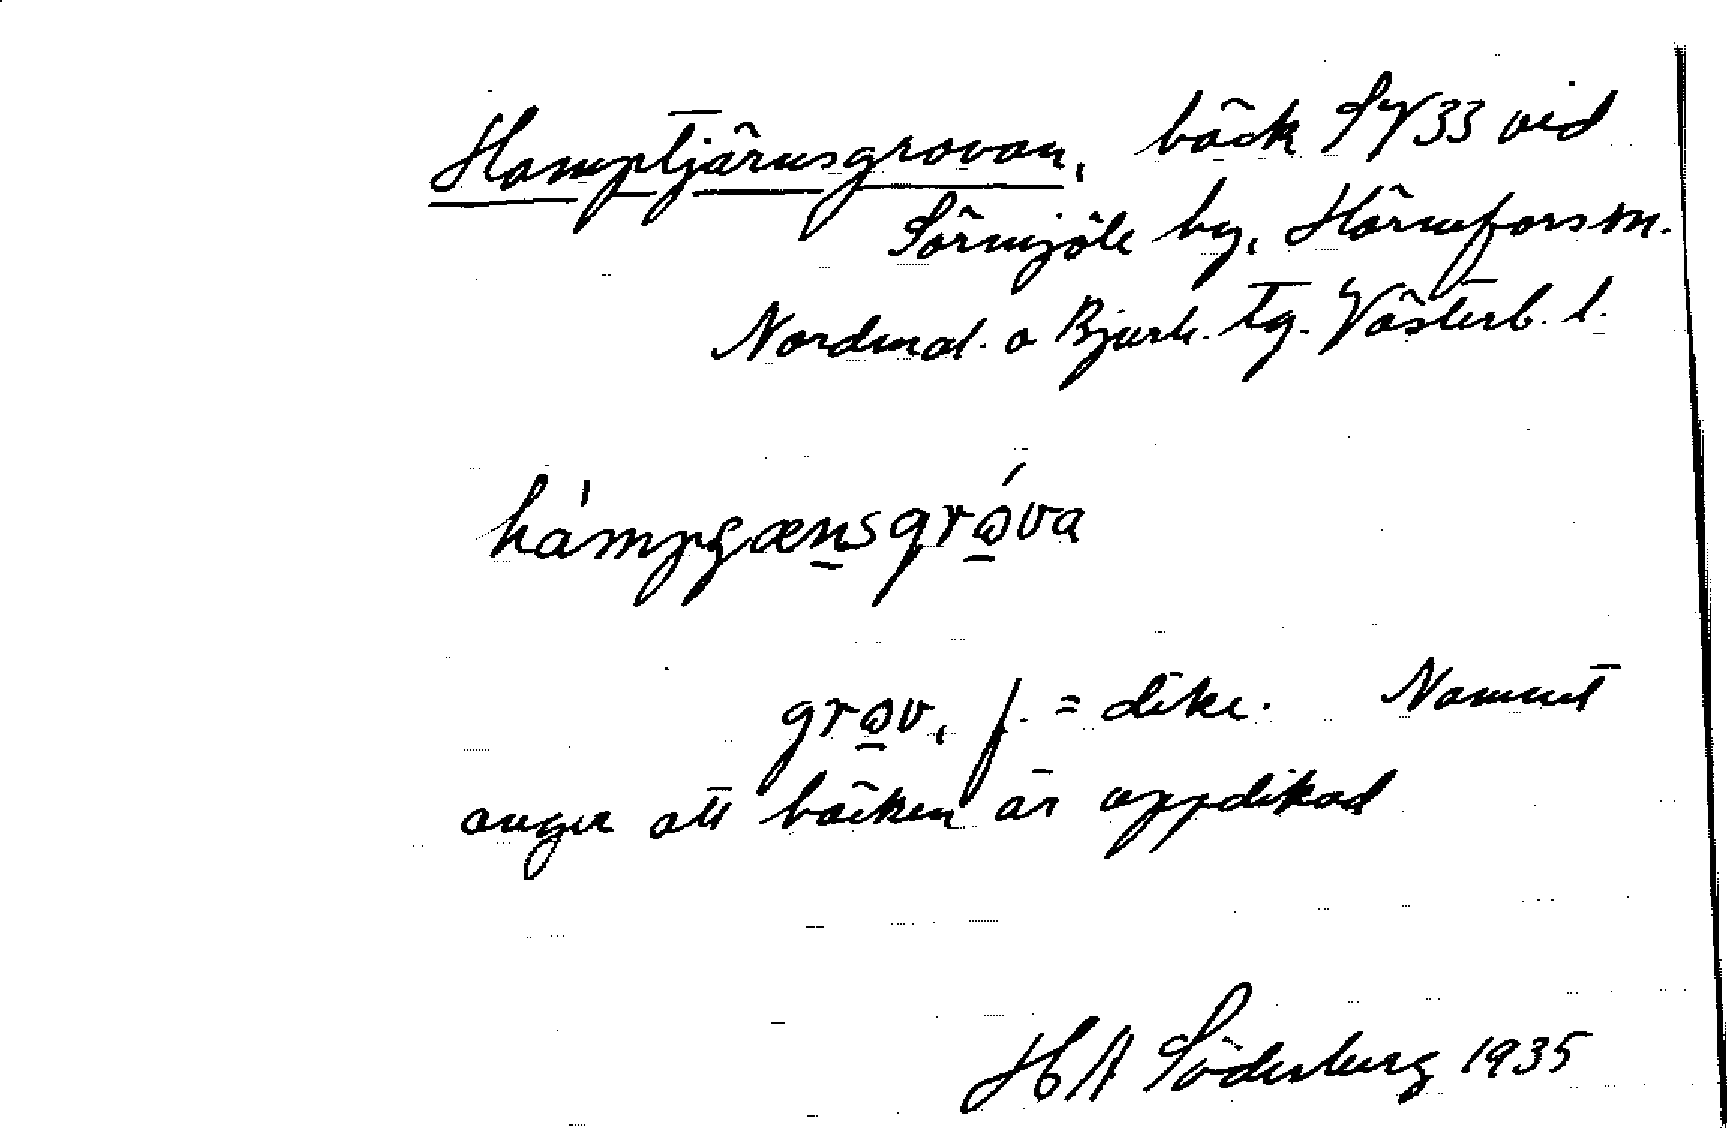 Hamptjärnsgrovan, bäck SV33 vid
Sörmjöle by, Hörnefors sn.
Nordmal. o Bjurh. tg. Västerb. l.
grɷv, f. = dike. Namnet
anger att bäcken är uppdikad
H A Söderberg 1935